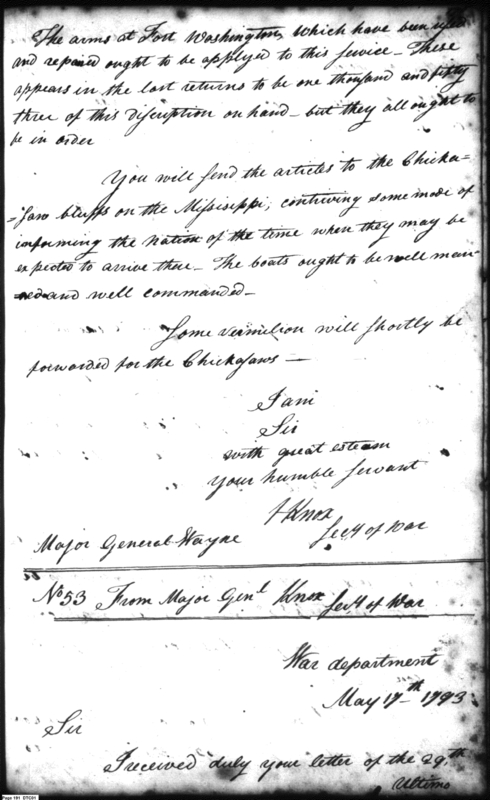 The arms at Fort Washington, which have been used
and repaired ought to be applyed to this service_ These
appears in the last returns to be one thousand and fifty
three of this discription on hand_ but they all ought to
be in order
You will send the articles to the Chicka-
=saw bluffs on the Missisippi, contriving some mode of
informing the nation of the time when they may be
expected to arrive there_ The boats ought to be well man-
ned and well commanded_
Some vermilion will shortly be
forwarded for the Chickasaws_
I am
Sir
with great esteem
your humble servant
HKnox
Secy of War
Major General Wayne
No 53 From Major Genl Knox Secy of War
War department
May 17th 1793
Sir
I received duly your letter of the 29th
Ultimo
Page 191 DTC01